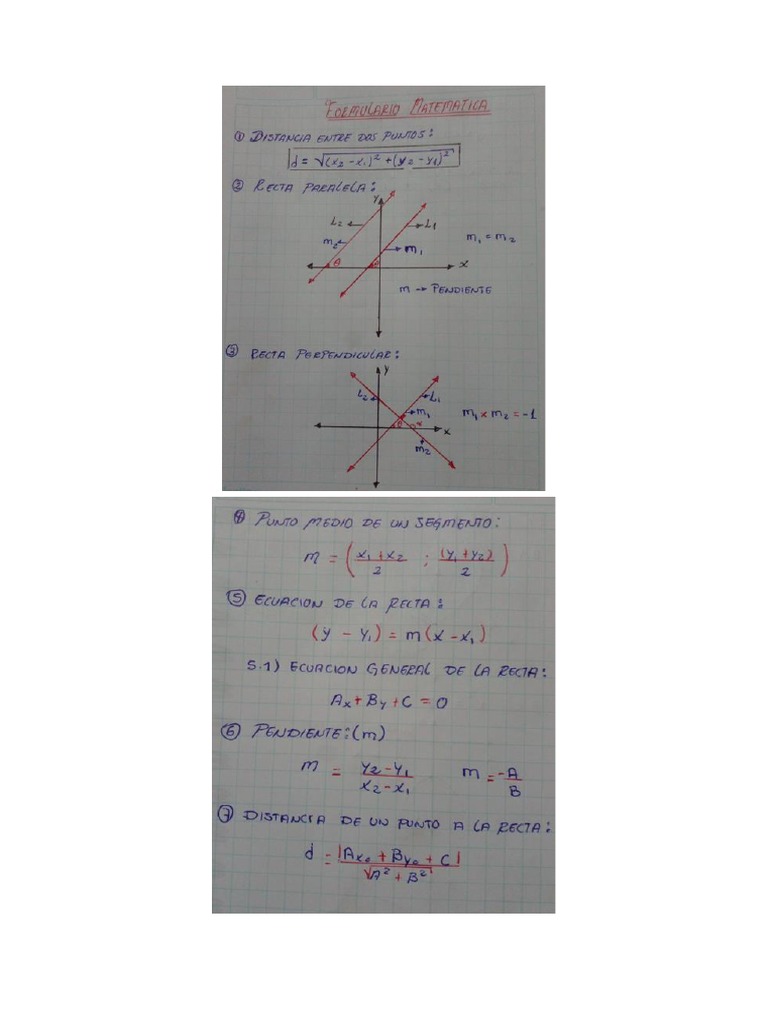 FORMULARIO MATEMATICA
① DISTANCIA ENTRE DOS PUNTOS:
d = √(x₂ - x₁)² + (y₂ - y₁)²
② RECTA PARALELA:
Y
L₂ L₁
m₁ = m₂
m₂ m₁
θ θ x
m → PENDIENTE
③ RECTA PERPENDICULAR:
y
L₂ L₁
m₁ m₁ x m₂ = -1
θ α x
m₂
④ PUNTO MEDIO DE UN SEGMENTO:
m = (x₁ + x₂ / 2 ; (y₁ + y₂) / 2)
⑤ ECUACION DE LA RECTA:
(y - y₁) = m(x - x₁)
5.1) ECUACION GENERAL DE LA RECTA:
Ax + By + C = 0
⑥ PENDIENTE: (m)
m = y₂ - y₁ / x₂ - x₁ m = -A / B
⑦ DISTANCIA DE UN PUNTO A LA RECTA:
d = |Ax₀ + By₀ + C| / √A² + B²